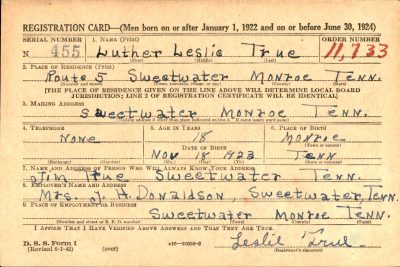 REGISTRATION CARD—(Men born on or after January 1, 1922 and on or before June 30, 1924)
SERIAL NUMBER 1. NAME (Print) ORDER NUMBER
N 455 Luther Leslie True 11,733
(First) (Middle) (Last)
2. PLACE OF RESIDENCE (Print)
Route 5 Sweetwater Monroe Tenn.
[THE PLACE OF RESIDENCE GIVEN ON THE LINE ABOVE WILL DETERMINE LOCAL BOARD
JURISDICTION; LINE 2 OF REGISTRATION CERTIFICATE WILL BE IDENTICAL]
3. MAILING ADDRESS
Sweetwater Monroe Tenn.
[Mailing address if other than place indicated on line 2. If same insert word same]
4. TELEPHONE 5. AGE IN YEARS 6. PLACE OF BIRTH
None 18 Monroe
DATE OF BIRTH (Town or county)
Nov 18 1923 Tenn
(Exchange) (Number) (Mo.) (Day) (Yr.) (State or country)
7. NAME AND ADDRESS OF PERSON WHO WILL ALWAYS KNOW YOUR ADDRESS
Jim True Sweetwater Tenn.
8. EMPLOYER'S NAME AND ADDRESS
Mrs. J. H. Donaldson, Sweetwater, Tenn.
9. PLACE OF EMPLOYMENT OR BUSINESS
Sweetwater Monroe Tenn.
(Number and street or R. F. D. number) (Town) (County) (State)
I AFFIRM THAT I HAVE VERIFIED ABOVE ANSWERS AND THAT THEY ARE TRUE.
D. S. S. Form 1
(Revised 6-1-42) (over) Leslie True